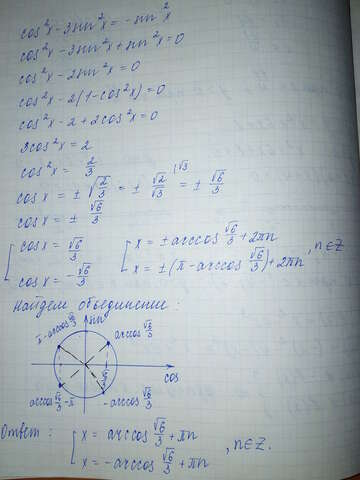 cos²x - 3sin²x = -sin²x
cos²x - 3sin²x + sin²x = 0
cos²x - 2sin²x = 0
cos²x - 2(1-cos²x) = 0
cos²x - 2 + 2cos²x = 0
3cos²x = 2
cos²x = 2/3
cos x = ± √(2/3) = ± √2/√3 |√3 = ± √6/3
cos x = ± √6/3
[ cos x = √6/3 [ x = ± arccos √6/3 + 2πn
cos x = -√6/3 x = ± (π - arccos √6/3) + 2πn , n∈Z
Найдем объединение:
sin
π - arccos √6/3 arccos √6/3
√6/3 cos
arccos √6/3 - π - arccos √6/3
Ответ: [ x = arccos √6/3 + πn
x = - arccos √6/3 + πn , n∈Z.